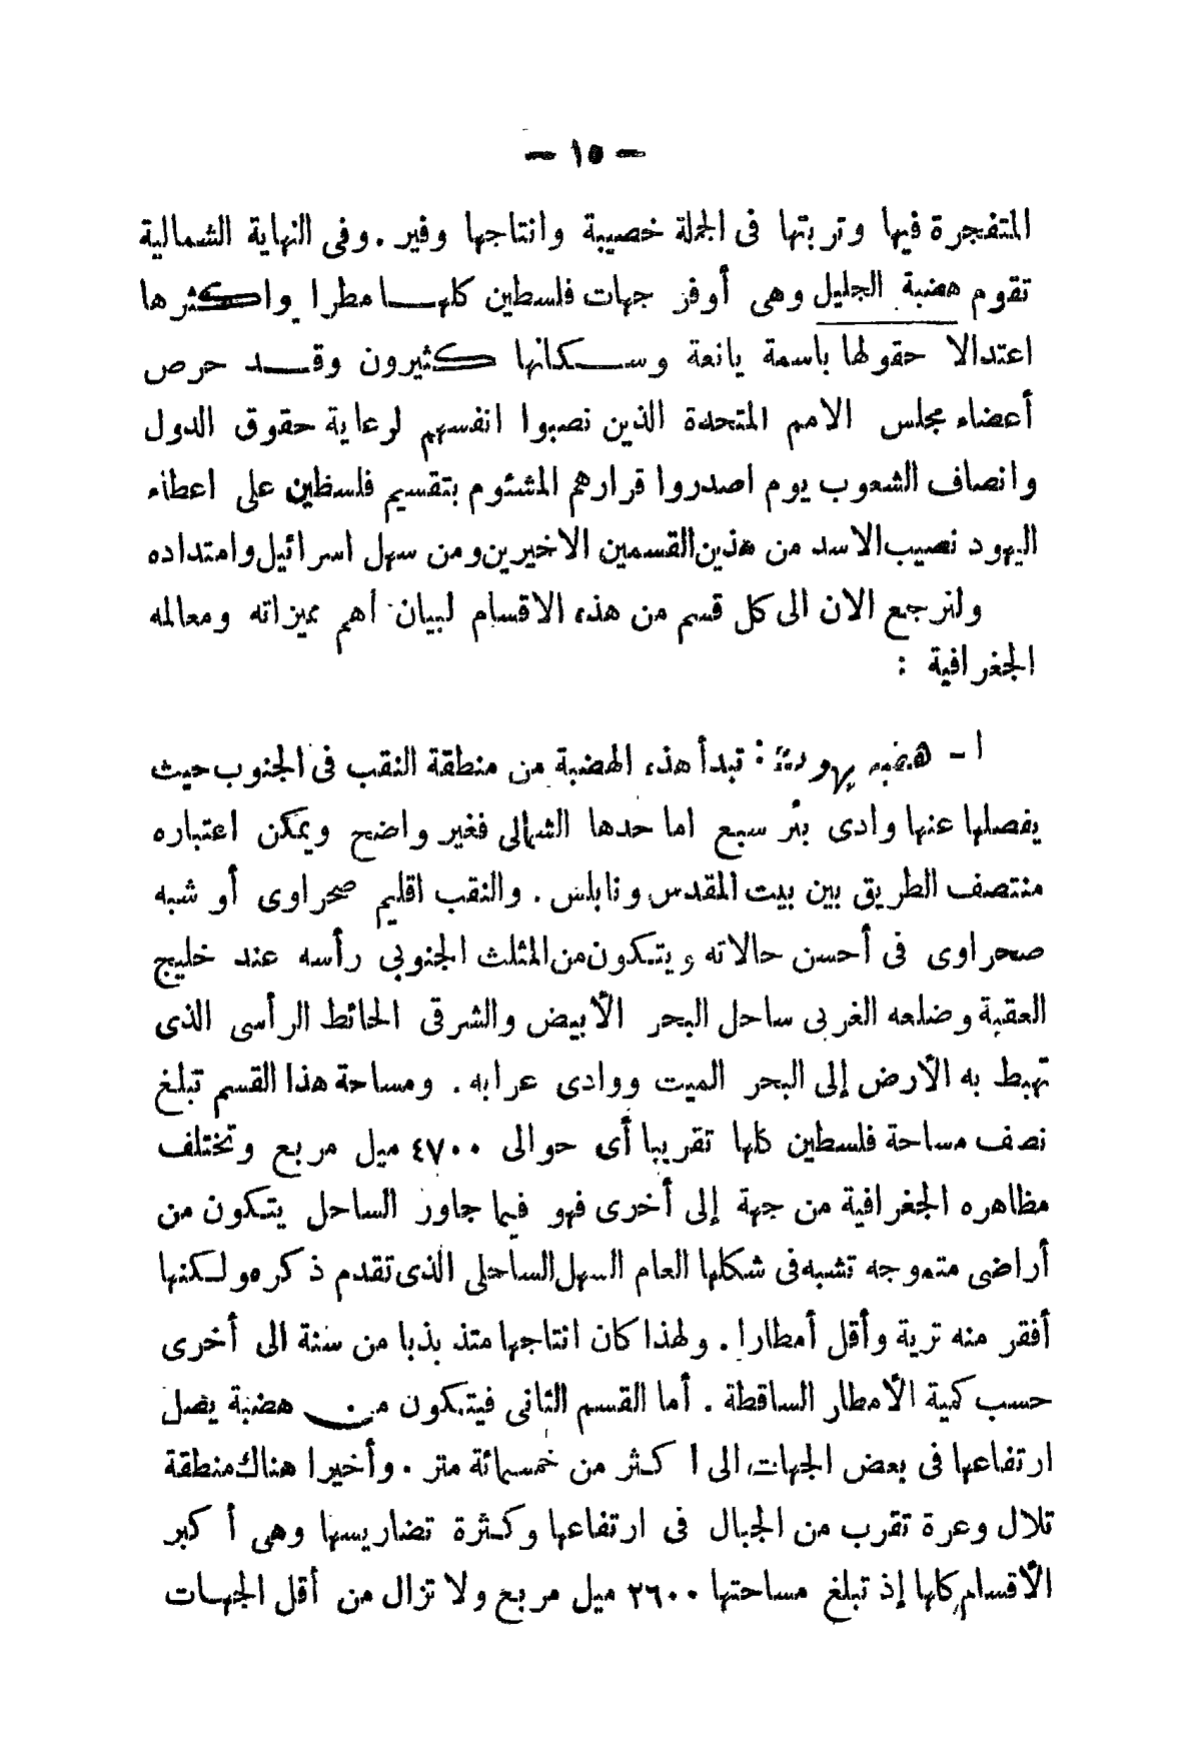 — ١٥ —
المتفجرة فيها وتربتها فى الجملة خصيبة وانتاجها وفير . وفى النهاية الشمالية
تقوم هضبة الجليل وهى أوفر جهات فلسطين كلها مطرا واكثرها
اعتدالا حقولها باسمة يانعة وسكانها كثيرون وقد حرص
أعضاء مجلس الامم المتحدة الذين نصبوا انفسهم لرعاية حقوق الدول
وانصاف الشعوب يوم اصدروا قرارهم المشئوم بتقسيم فلسطين على اعطاء
اليهود نصيب الاسد من هذين القسمين الاخيرين ومن سهل اسرائيل وامتداده
ولنرجع الان الى كل قسم من هذه الاقسام لبيان اهم مميزاته ومعالمه
الجغرافية :
ا - هضبه يهودية : تبدأ هذه الهضبة من منطقة النقب فى الجنوب حيث
يفصلها عنها وادى بئر سبع اما حدها الشمالى فغير واضح ويمكن اعتباره
منتصف الطريق بين بيت المقدس ونابلس . والنقب اقليم صحراوى أو شبه
صحراوى فى أحسن حالاته ويتكون من المثلث الجنوبى رأسه عند خليج
العقبة وضلعه الغربى ساحل البحر الأبيض والشرقى الحائط الرأسى الذى
تهبط به الأرض إلى البحر الميت ووادى عرابه . ومساحة هذا القسم تبلغ
نصف مساحة فلسطين كلها تقريبا أى حوالى ٤٧٠٠ ميل مربع وتختلف
مظاهره الجغرافية من جهة إلى أخرى فهو فيما جاور الساحل يتكون من
أراضى متموجه تشبه فى شكلها العام السهل الساحلى الذى تقدم ذكره ولكنها
أفقر منه تربة وأقل أمطارا . ولهذا كان انتاجها متذبذبا من سنة الى أخرى
حسب كمية الأمطار الساقطة . أما القسم الثانى فيتكون من هضبة يصل
ارتفاعها فى بعض الجهات الى اكثر من خمسمائة متر . وأخيرا هناك منطقة
تلال وعرة تقرب من الجبال فى ارتفاعها وكثرة تضاريسها وهى أكبر
الأقسام كلها إذ تبلغ مساحتها ٢٦٠٠ ميل مربع ولا تزال من أقل الجهات